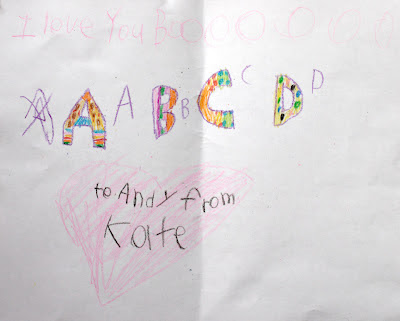 I love You BoOOOOOO
A A B B C C D D
to Andy from
Kate